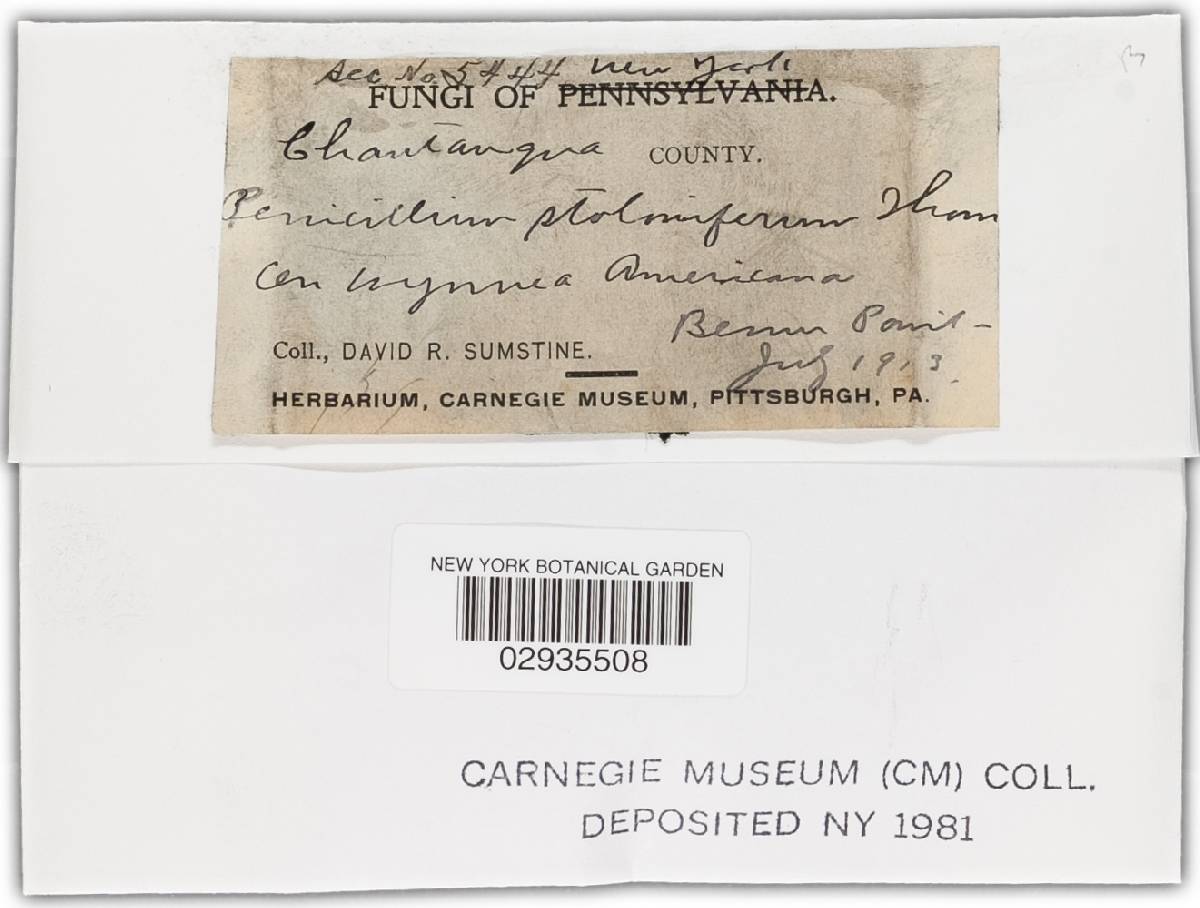 Acc No. 5444 New York
FUNGI OF PENNSYLVANIA.
Chautauqua COUNTY.
Penicillium stoloniferum Thom
on Wynnea Americana
Bemus Point -
Coll., DAVID R. SUMSTINE.
July 1913.
HERBARIUM, CARNEGIE MUSEUM, PITTSBURGH, PA.
NEW YORK BOTANICAL GARDEN
02935508
CARNEGIE MUSEUM (CM) COLL.
DEPOSITED NY 1981